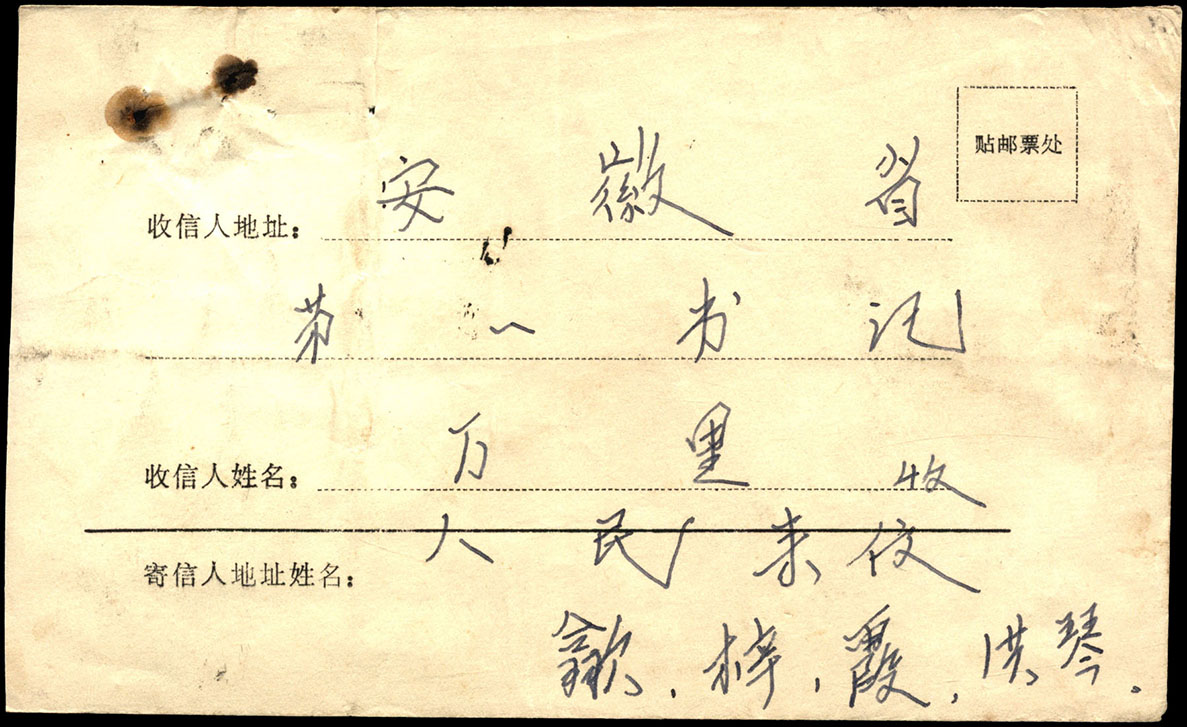 贴邮票处
收信人地址：安徽省
第一书记
收信人姓名：万里收
人民来伩
寄信人地址姓名：
歙、梓、霞、洪琴.